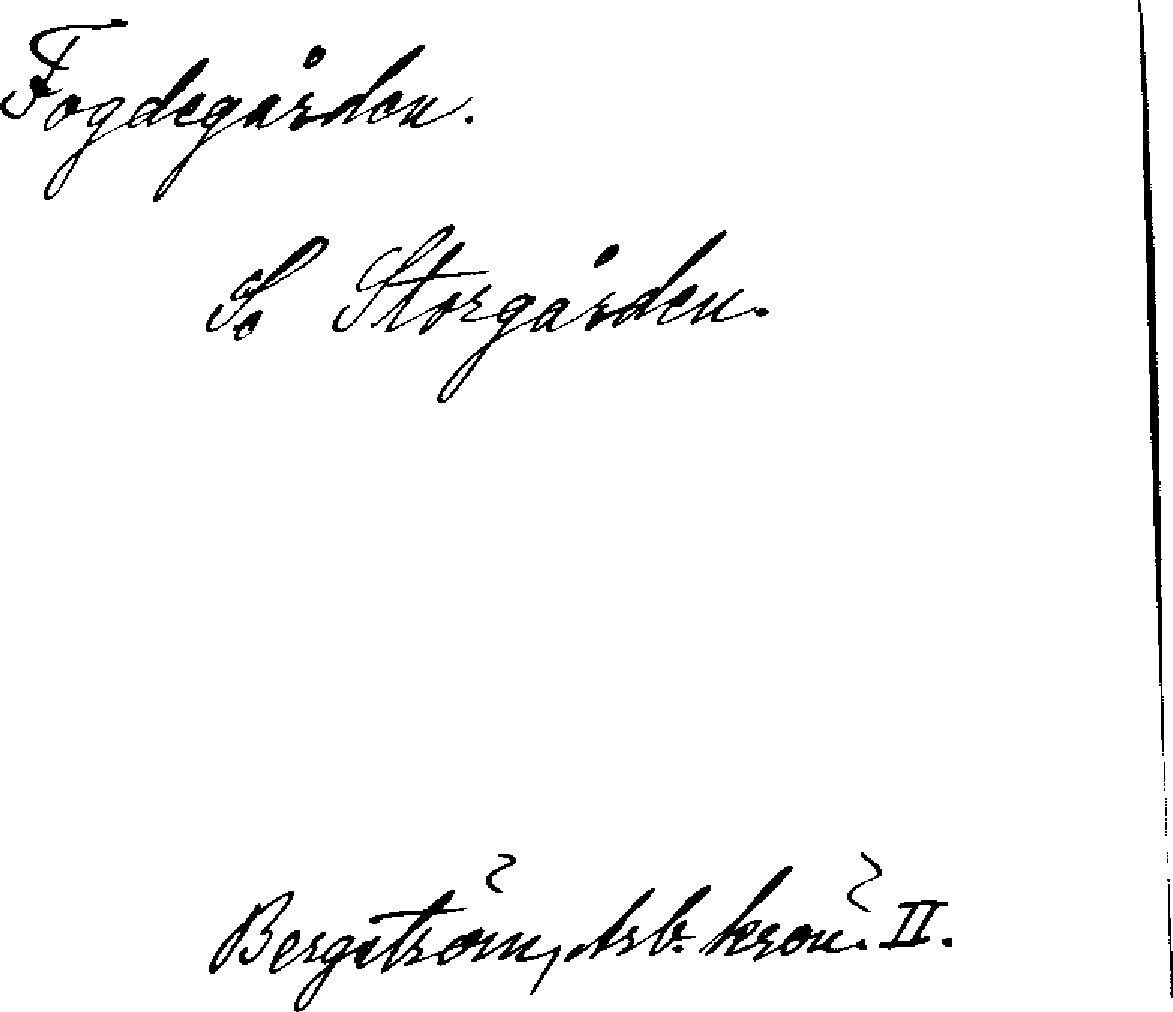 Fogdegården.
So Storgården.
Bergström, Arb. krön. II.